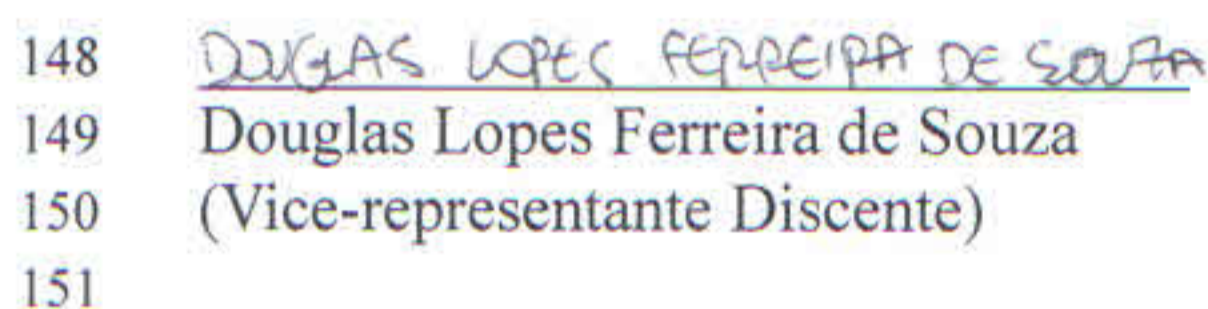 148 DOUGLAS LOPES FERREIRA DE SOUZA
149 Douglas Lopes Ferreira de Souza
150 (Vice-representante Discente)
151